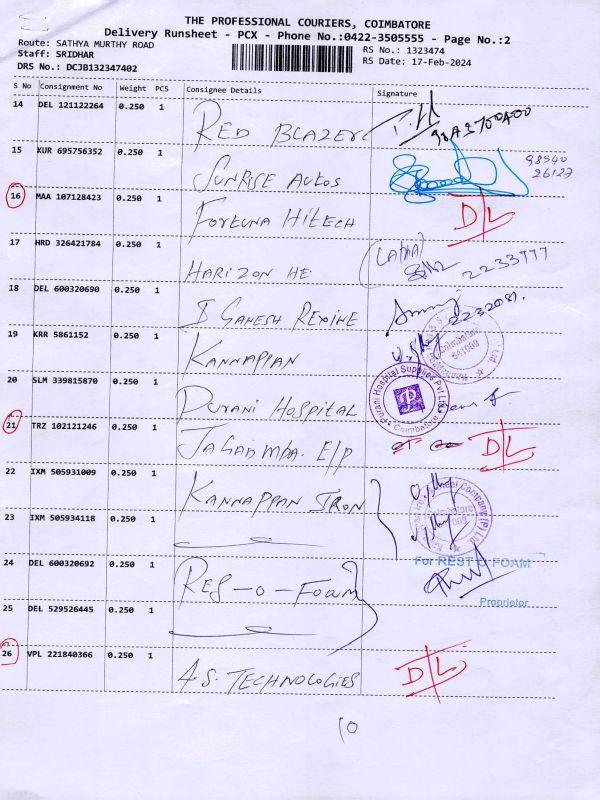 THE PROFESSIONAL COURIERS, COIMBATORE
Delivery Runsheet - PCX - Phone No.:0422-3505555 - Page No.:2
Route: SATHYA MURTHY ROAD
RS No.: 1323474
Staff: SRIDHAR
RS Date: 17-Feb-2024
DRS No.: DCJB132347402
S No Consignment No Weight PCS Consignee Details Signature
14 DEL 121122264 0.250 1 RED BLAZER
15 KUR 695756352 0.250 1 SUNRISE AUTOS 98540
26127
16 MAA 107128423 0.250 1 FORTUNA HITECH D/L
17 HRD 326421784 0.250 1 HARIZON HE 2233777
18 DEL 600320690 0.250 1 S GANESH REXINE
19 KRR 5861152 0.250 1 KANNAPPAN
Coimbatore
641009
20 SLM 339815870 0.250 1 PURANI HOSPITAL
Purani Hospital Supplies Pvt Ltd
Coimbatore
21 TRZ 102121246 0.250 1 JAGADMBA. E/P D/L
22 IXM 505931009 0.250 1 KANNAPPAN IRON
23 IXM 505934118 0.250 1
24 DEL 600320692 0.250 1 RES-O-FOAM
For REST O FOAM
Proprietor
25 DEL 529526445 0.250 1
26 VPL 221840366 0.250 1 A.S. TECHNOLOGIES D/L
10